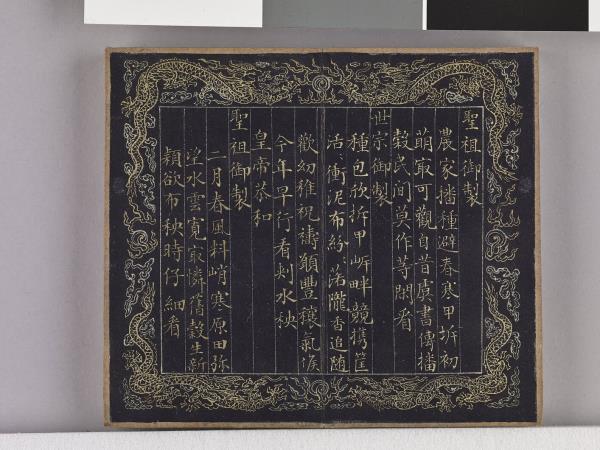 聖祖御製
農家播種避春寒甲拆初
萌最可觀自昔虞書傳播
穀民間莫作等閑看
世宗御製
種包欣拆甲岍畔競攜筐
活活衝泥布紛紛落隴香追隨
歡幼稚祝禱願豐穰氣候
今年早行看刺水秧
皇帝恭和
聖祖御製
二月春風料峭寒原田弥
望水雲寬最憐舊穀生新
穎欲布秧時仔細看